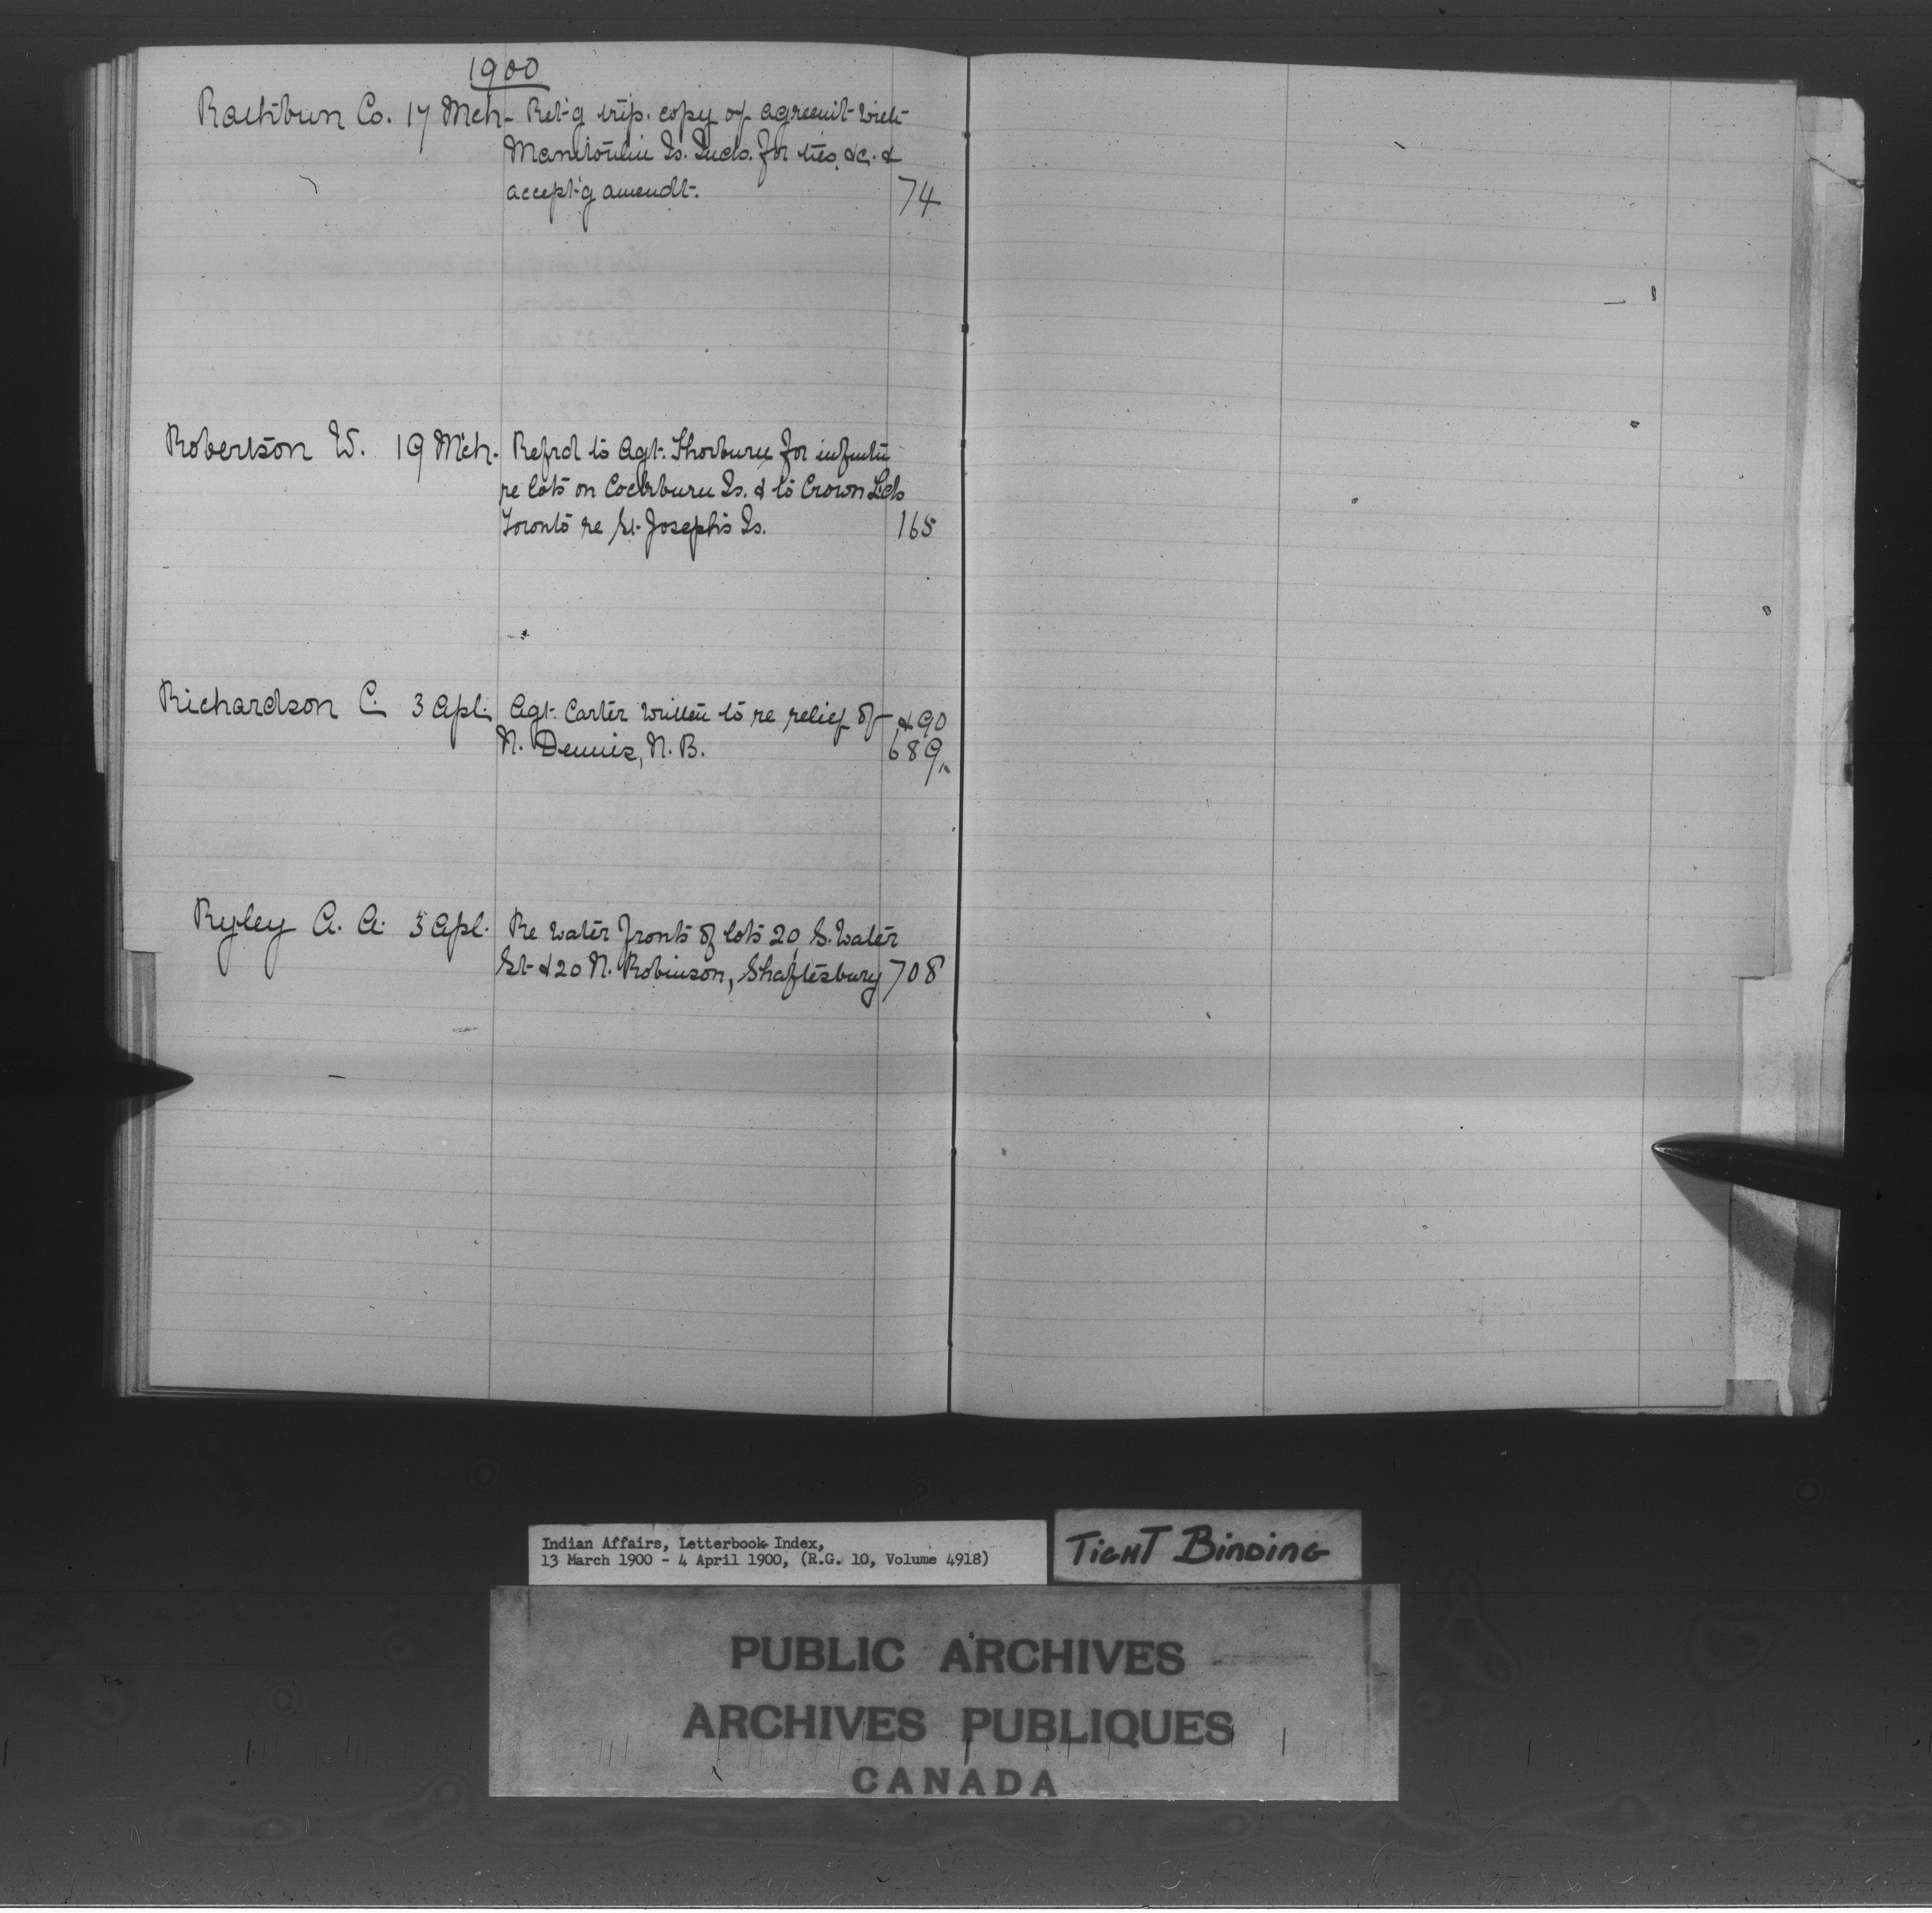 1900
Rathbun Co. 17 Mch- Ret'g trip. copy of agreem't with
Manitoulin Is. Inds. for ties &c. &
accept'g amendt. 74
Robertson W. 19 Mch. Refrd to Agt. Thorburn for infmtn
re lots on Cockburn Is. & to Crown Lds
Toronto re St. Joseph's Is. 165
Richardson C. 3 Apl. Agt. Carter written to re relief of & 90
N. Dennis, N. B. 689
Ryley A. A. 3 Apl. Re water fronts of lots 20, S. Water
St. & 20 N. Robinson, Shaftesbury 708
Indian Affairs, Letterbook Index,
13 March 1900 - 4 April 1900, (R.G. 10, Volume 4918)
TIGHT BINDING
PUBLIC ARCHIVES
ARCHIVES PUBLIQUES
CANADA